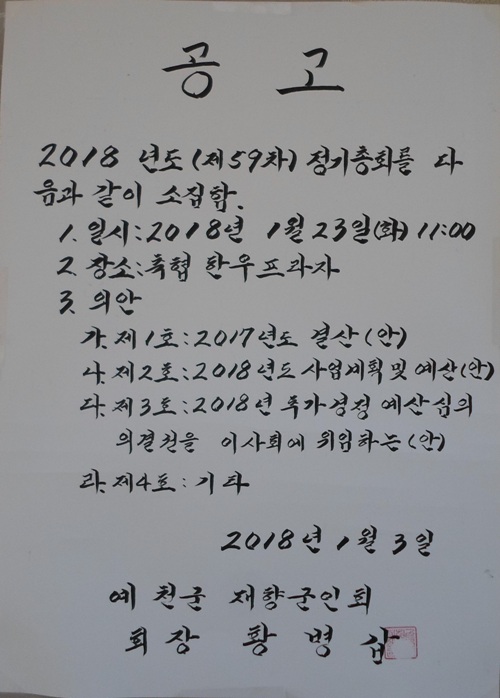 공 고
2018 년도 (제59차) 정기총회를 다
음과 같이 소집함.
1. 일시: 2018년 1월 23일(화) 11:00
2. 장소: 축협 한우프라자
3. 의안
가. 제1호: 2017년도 결산(안)
나. 제2호: 2018년도 사업계획 및 예산(안)
다. 제3호: 2018년 추가경정 예산 심의
의결권을 이사회에 위임하는(안)
라. 제4호: 기타
2018년 1월 3일
예천군 재향군인회
회장 황병삼